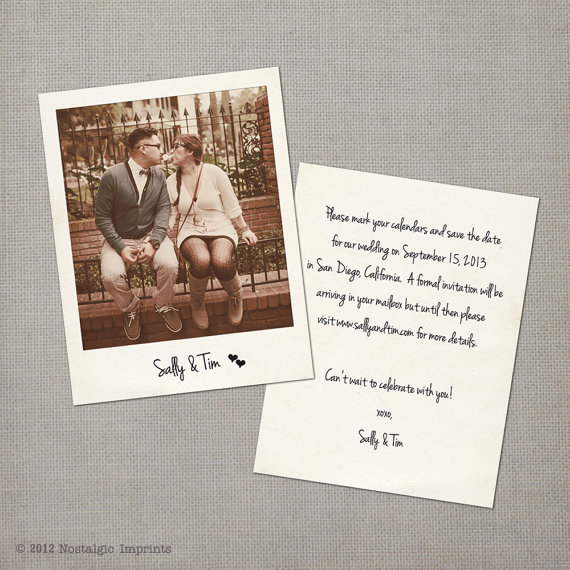 Sally & Tim
Please mark your calendars and save the date
for our wedding on September 15, 2013
in San Diego, California. A formal invitation will be
arriving in your mailbox but until then please
visit www.sallyandtim.com for more details.
Can't wait to celebrate with you!
xoxo,
Sally & Tim
© 2012 Nostalgic Imprints